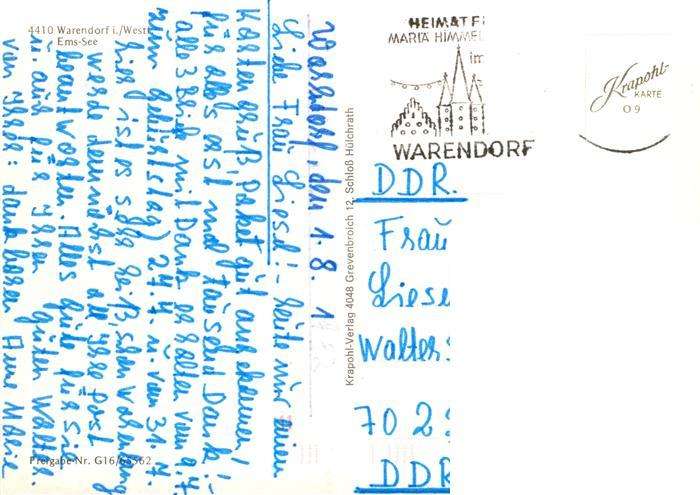 4410 Warendorf i./Westf
Ems-See
Warendorf, den 1. 8. 1
Liebe Frau Liesel! – heute nur einen
Kartengruß, paket gut angekommen!
für alles erst mal tausend Dank!
alle 3 Briefe mit Dank erhalten vom 9.7.
24.7. u. vom 31.7.
hier ist es sehr heiß, schon
werde demnächst alle Ihre Post
beantworten. Alles Gute für Sie
u. auch für Ihren guten Walter.
von Ihrer dankbaren
Freigabe-Nr. G16/
Krapohl-Verlag 4048 Grevenbroich 12, Schloß Hülchrath
HEIMATFE
MARIÄ HIMMEL
im
WARENDORF
Krapohl-
KARTE
O 9
DDR.
Frau
Liese
Walter
70 2
DDR